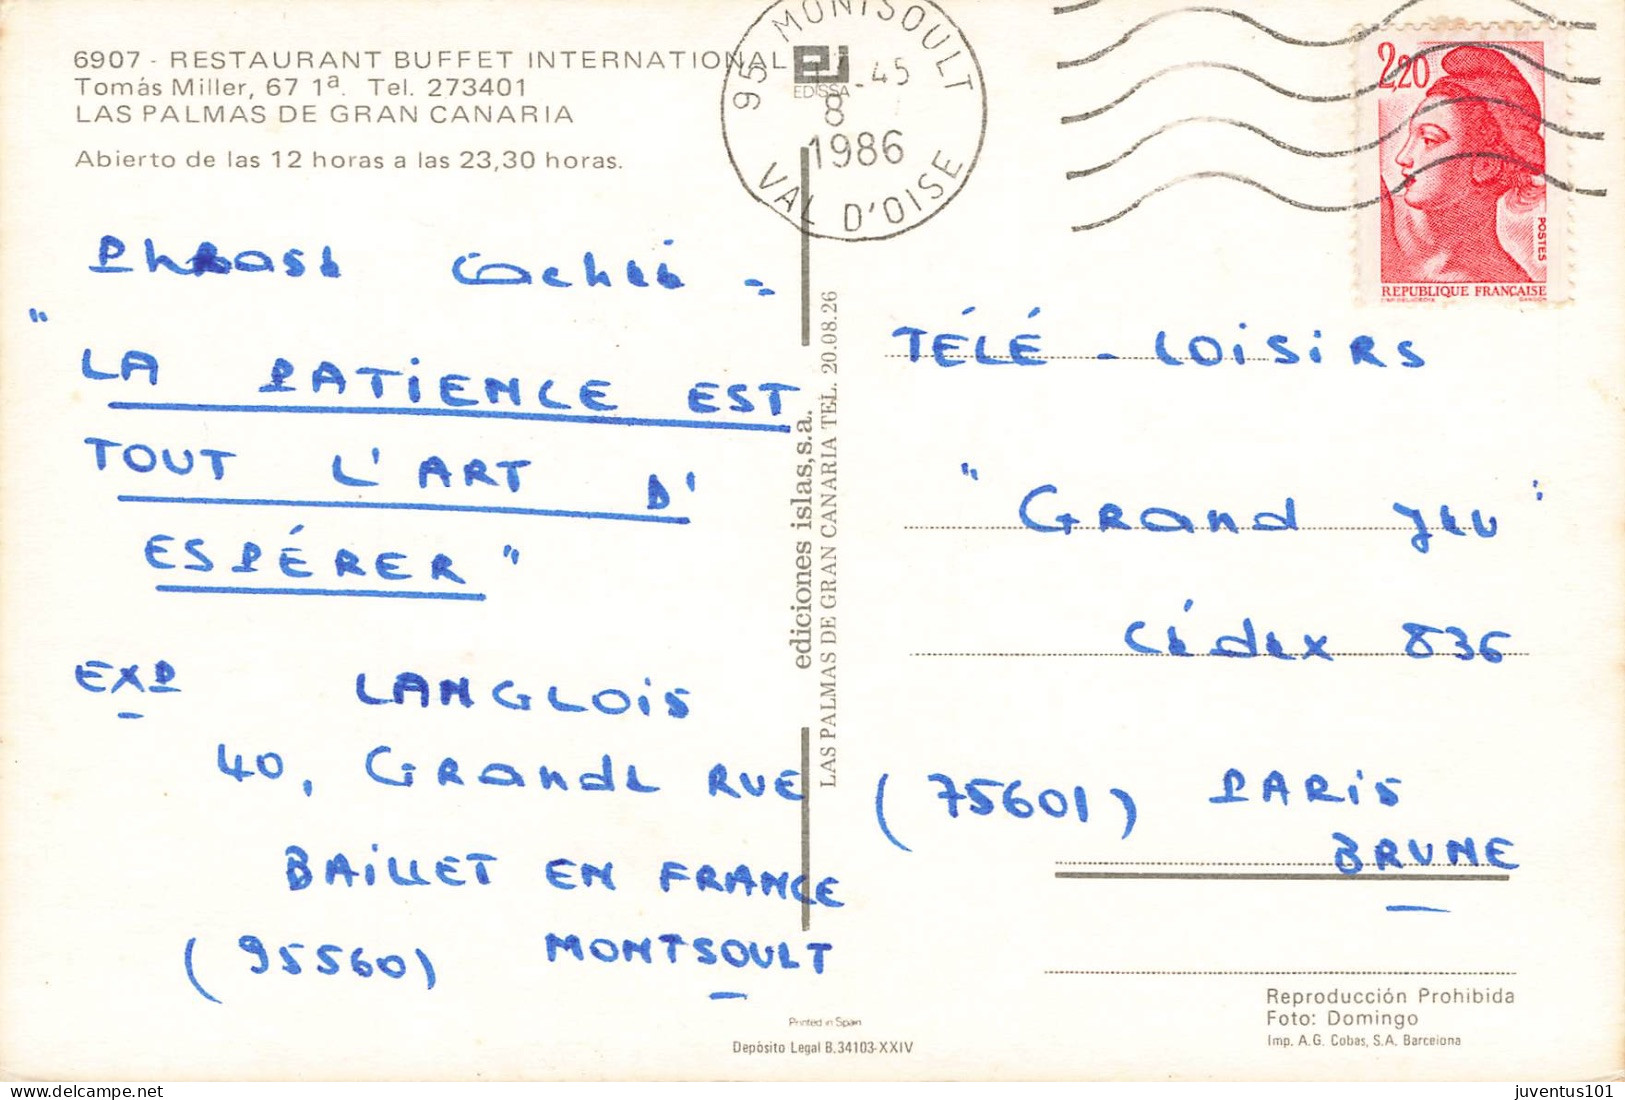 6907 - RESTAURANT BUFFET INTERNATIONAL
Tomás Miller, 67 1ª. Tel. 273401
LAS PALMAS DE GRAN CANARIA
Abierto de las 12 horas a las 23,30 horas.
EDISSA
95 MONTSOULT
-45
8
1986
VAL D'OISE
2,20
POSTES
REPUBLIQUE FRANÇAISE
Phrase Cachée =
"LA PATIENCE EST
TOUT L'ART D'
ESPÉRER"
EXP LANGLOIS
40, Grande RUE
BAILLET EN FRANCE
(95560) MONTSOULT
ediciones islas,s.a.
LAS PALMAS DE GRAN CANARIA TEL. 20.08.26
TÉLÉ - LOISIRS
"Grand Jeu"
Cédex 836
(75601) PARIS
BRUNE
Printed in Spain
Depósito Legal B.34103-XXIV
Reproducción Prohibida
Foto: Domingo
Imp. A.G. Cobas, S.A. Barcelona
delcampe.net
juventus101